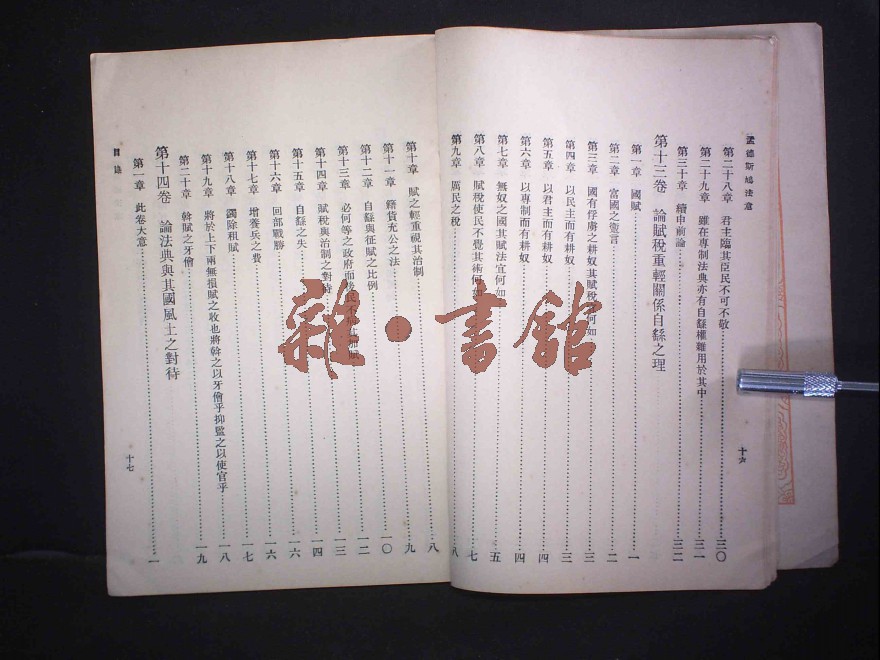 孟德斯鳩法意
第二十八章 君主臨其臣民不可不敬 三〇
第二十九章 雖在專制法典亦有自繇權雖用於其中 三一
第三十章 續申前論 三二
第十三卷 論賦稅重輕關係自繇之理
第一章 國賦 一
第二章 富國之 言 二
第三章 國有俘虜之耕奴其賦稅 何如 三
第四章 以民主而有耕奴 三
第五章 以君主而有耕奴 四
第六章 以專制而有耕奴 四
第七章 無奴之國其賦法宜何如 五
第八章 賦稅使民不覺其術何如 七
第九章 厲民之稅 八
十六
第十章 賦之輕重視其治制 八
第十一章 籍貨充公之法 九
第十二章 自繇與征賦之比例 一〇
第十三章 必何等之政府而 民不 加賦 一二
第十四章 賦稅與治制之對待 一三
第十五章 自繇之失 一四
第十六章 回部戰勝 一六
第十七章 增養兵之費 一六
第十八章 蠲除租賦 一七
第十九章 將於上下兩無損賦之收也將斡之以牙儈乎抑監之以使官乎 一八
第二十章 斡賦之牙儈 一九
第十四卷 論法典與其國風土之對待
第一章 此卷大意 一
目錄
十七
雜·書館